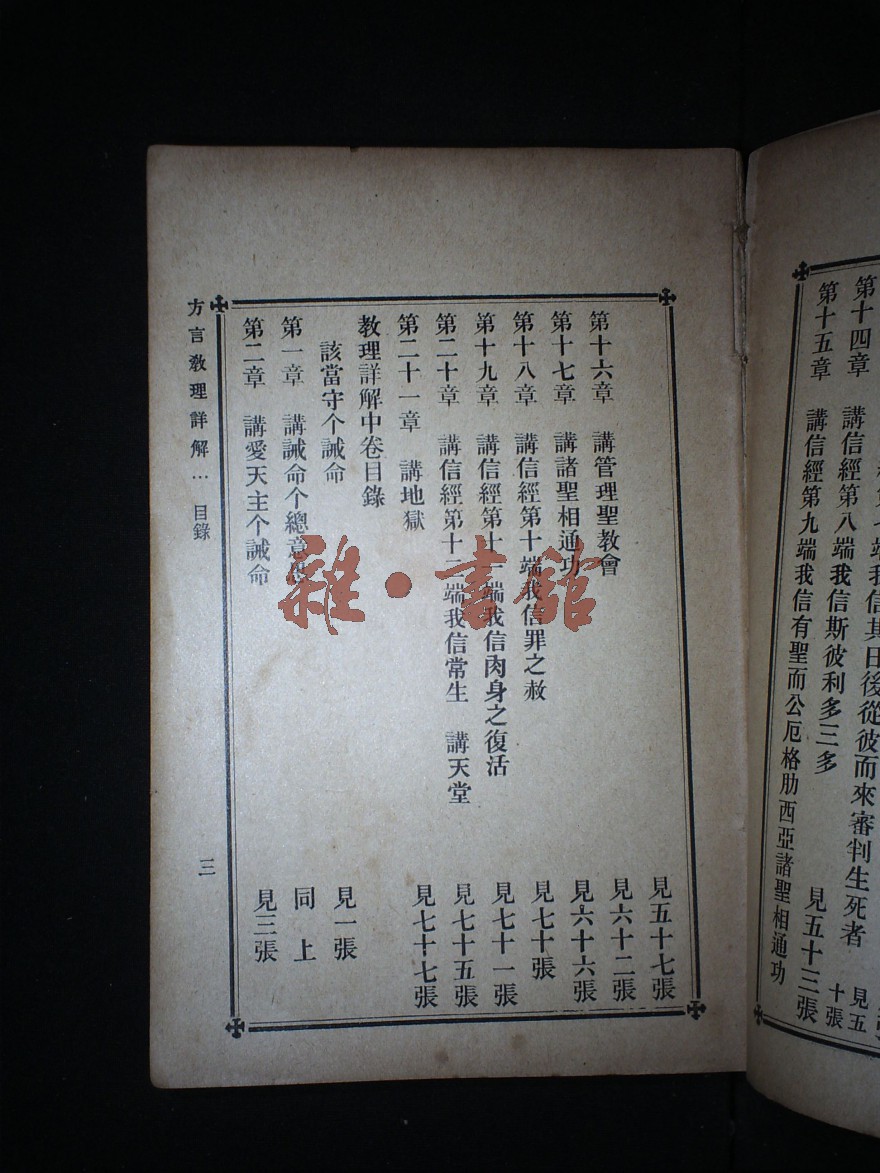 端我信其日後從彼而來審判生死者 見五十張
第十四章 講信經第八端我信斯彼利多三多 見五十三張
第十五章 講信經第九端我信有聖而公厄格肋西亞諸聖相通功
見五十七張
第十六章 講管理聖教會 見六十二張
第十七章 講諸聖相通功 見六十六張
第十八章 講信經第十端我信罪之赦 見七十張
第十九章 講信經第十一端我信肉身之復活 見七十一張
第二十章 講信經第十二端我信常生 講天堂 見七十五張
第二十一章 講地獄 見七十七張
教理詳解中卷目錄
該當守个誡命 見一張
第一章 講誡命个總意 同上
第二章 講愛天主个誡命 見三張
方言教理詳解… 目錄 三
雜·書館